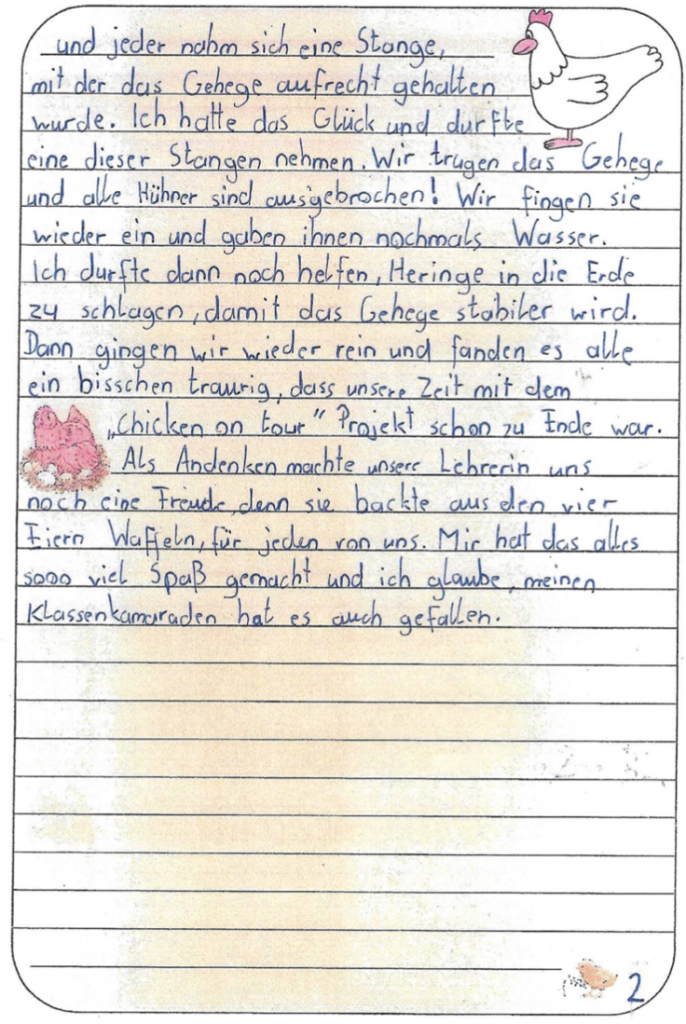 und jeder nahm sich eine Stange,
mit der das Gehege aufrecht gehalten
wurde. Ich hatte das Glück und durfte
eine dieser Stangen nehmen. Wir trugen das Gehege
und alle Hühner sind ausgebrochen! Wir fingen sie
wieder ein und gaben ihnen nochmals Wasser.
Ich durfte dann noch helfen, Heringe in die Erde
zu schlagen, damit das Gehege stabiler wird.
Dann gingen wir wieder rein und fanden es alle
ein bisschen traurig, dass unsere Zeit mit dem
„Chicken on tour" Projekt schon zu Ende war.
Als Andenken machte unsere Lehrerin uns
noch eine Freude, denn sie backte aus den vier
Eiern Waffeln, für jeden von uns. Mir hat das alles
sooo viel Spaß gemacht und ich glaube, meinen
Klassenkamaraden hat es auch gefallen.
2